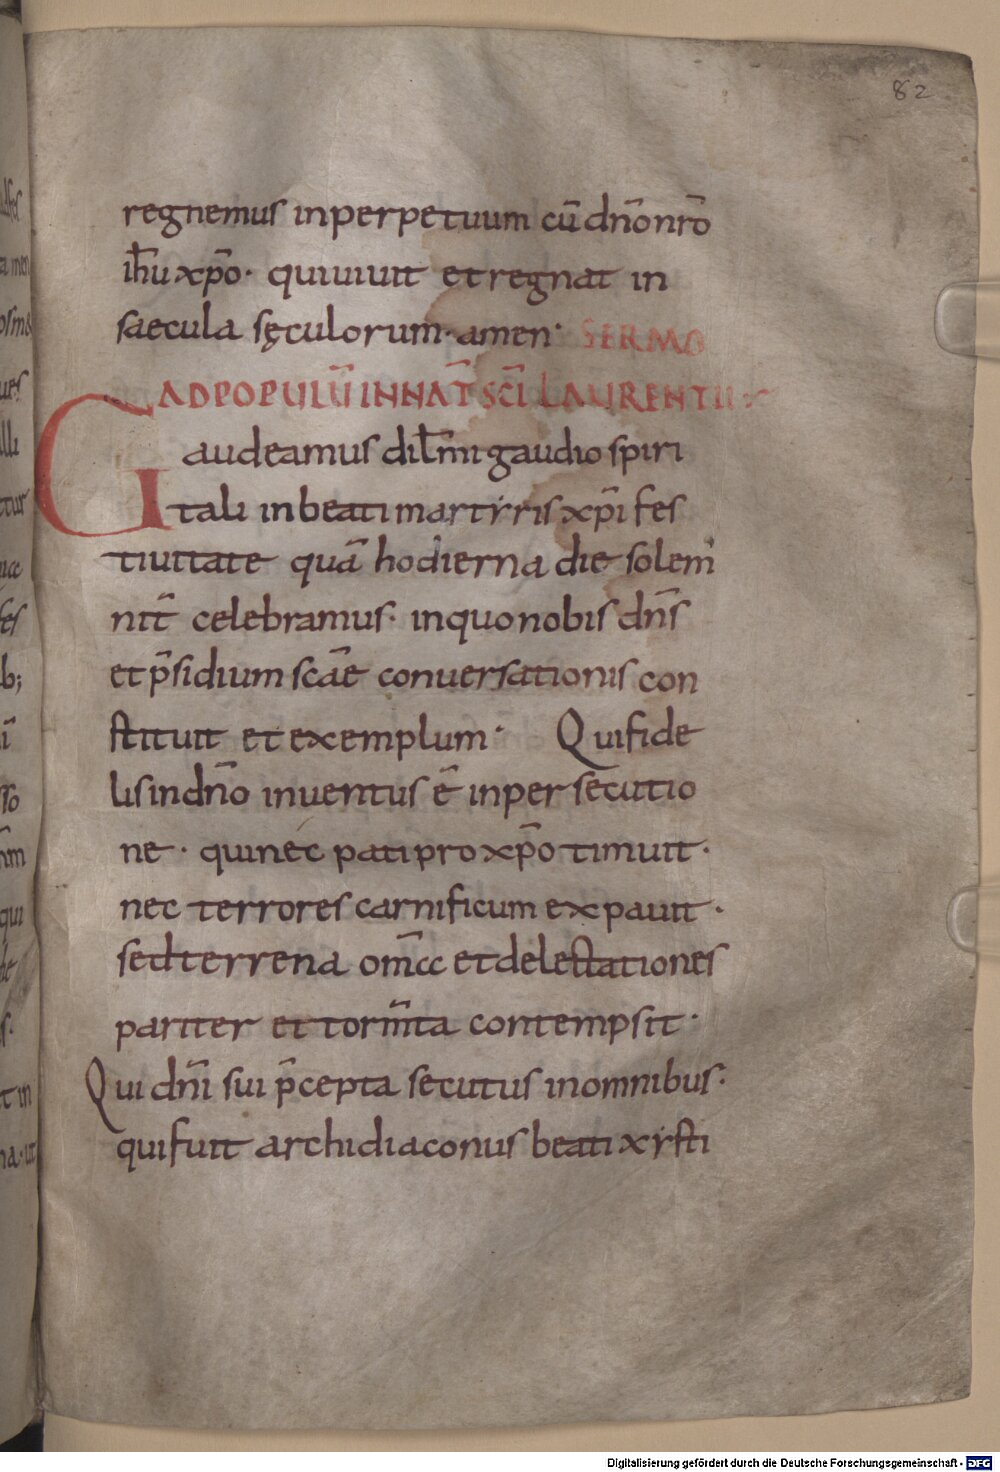 82
regnemus inperpetuum cū dn̄o nr̄o
ih̄u xp̄o· quiuiuit et regnat in
saecula sęculorum· amen· SERMO
AD POPULŪ IN NAT̄ SC̄I LAURENTII·
Gaudeamus dil̄mi gaudio spiri
tali in beati martyris xp̄i fes
tiuitate quā hodierna die solem
nit̄ celebramus· inquo nobis dn̄s
et p̄sidium scāe conuersationis con
stituit et exemplum· Qui fide
lis in dn̄o inuentus ē in persecutio
ne· qui nec pati pro xp̄o timuit·
nec terrores carnificum expauit·
sed terrena om̄cc et delectationes
pariter et torm̄ta contempsit·
Qui dn̄i sui p̄cepta secutus in omnibus·
qui fuit archidiaconus beati xysti
Digitalisierung gefördert durch die Deutsche Forschungsgemeinschaft - DFG